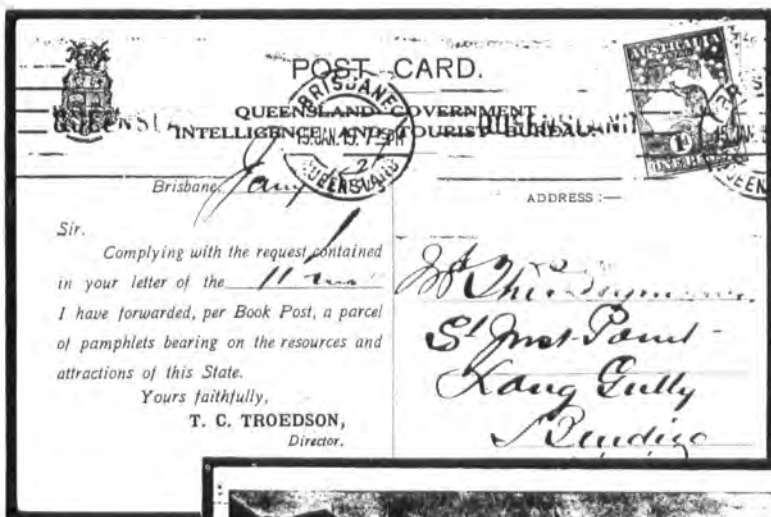 POST CARD.
QUEENSLAND GOVERNMENT
INTELLIGENCE AND TOURIST BUREAU.
BRISBANE
15 JAN. 15
QUEENSLAND
AUSTRALIA
1d
ONE PENNY
Brisbane,
ADDRESS :—
Sir.
Complying with the request contained
in your letter of the 11
I have forwarded, per Book Post, a parcel
of pamphlets bearing on the resources and
attractions of this State.
Yours faithfully,
T. C. TROEDSON,
Director.
St Just Point
Long Gully
Bendigo